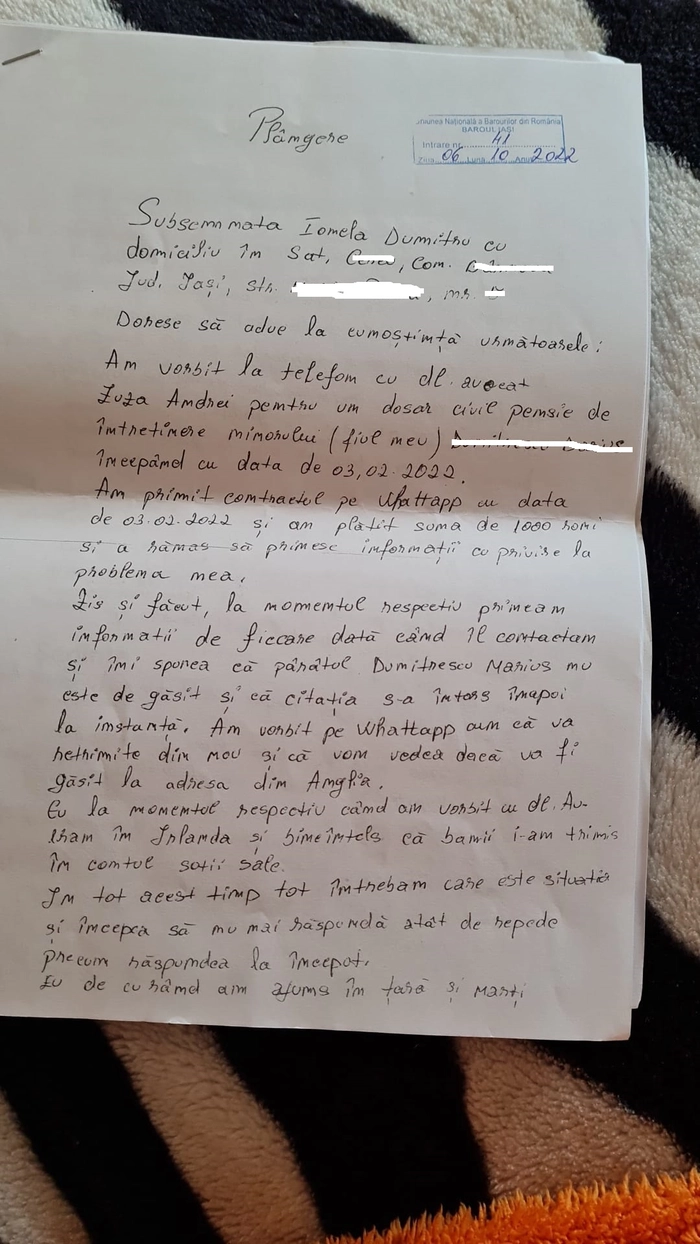 Plângere
Uniunea Națională a Barourilor din România
BAROUL IAȘI
Intrare nr. 41
Ziua 06 Luna 10 Anul 2022
Subsemnata Ionela Dumitru cu
domiciliu în Sat, Com.
Jud. Iași, Str. , nr.
Doresc să aduc la cunoștință următoarele:
Am vorbit la telefon cu dl. avocat
Zuza Andrei pentru un dosar civil pensie de
întreținere minorului (fiul meu)
începând cu data de 03,02.2022.
Am primit contractul pe Whattapp cu data
de 03.02.2022 și am plătit suma de 1000 roni
și a rămas să primesc informații cu privire la
problema mea.
Zis și făcut, la momentul respectiv primeam
informatii de fiecare dată când îl contactam
și îmi spunea că pârâtul Dumitrescu Marius nu
este de găsit și că citația s-a întors înapoi
la instanță. Am vorbit pe Whattapp cum că va
retrimite din nou și că vom vedea dacă va fi
găsit la adresa din Anglia.
Eu la momentul respectiv când am vorbit cu dl. Av-
eram în Irlanda și bineînțels că banii i-am trimis
în contul sotii sale.
În tot acest timp tot întrebam care este situatia
și începea să nu mai răspundă atât de repede
precum răspundea la început.
Eu de curând am ajuns în țară și Marți